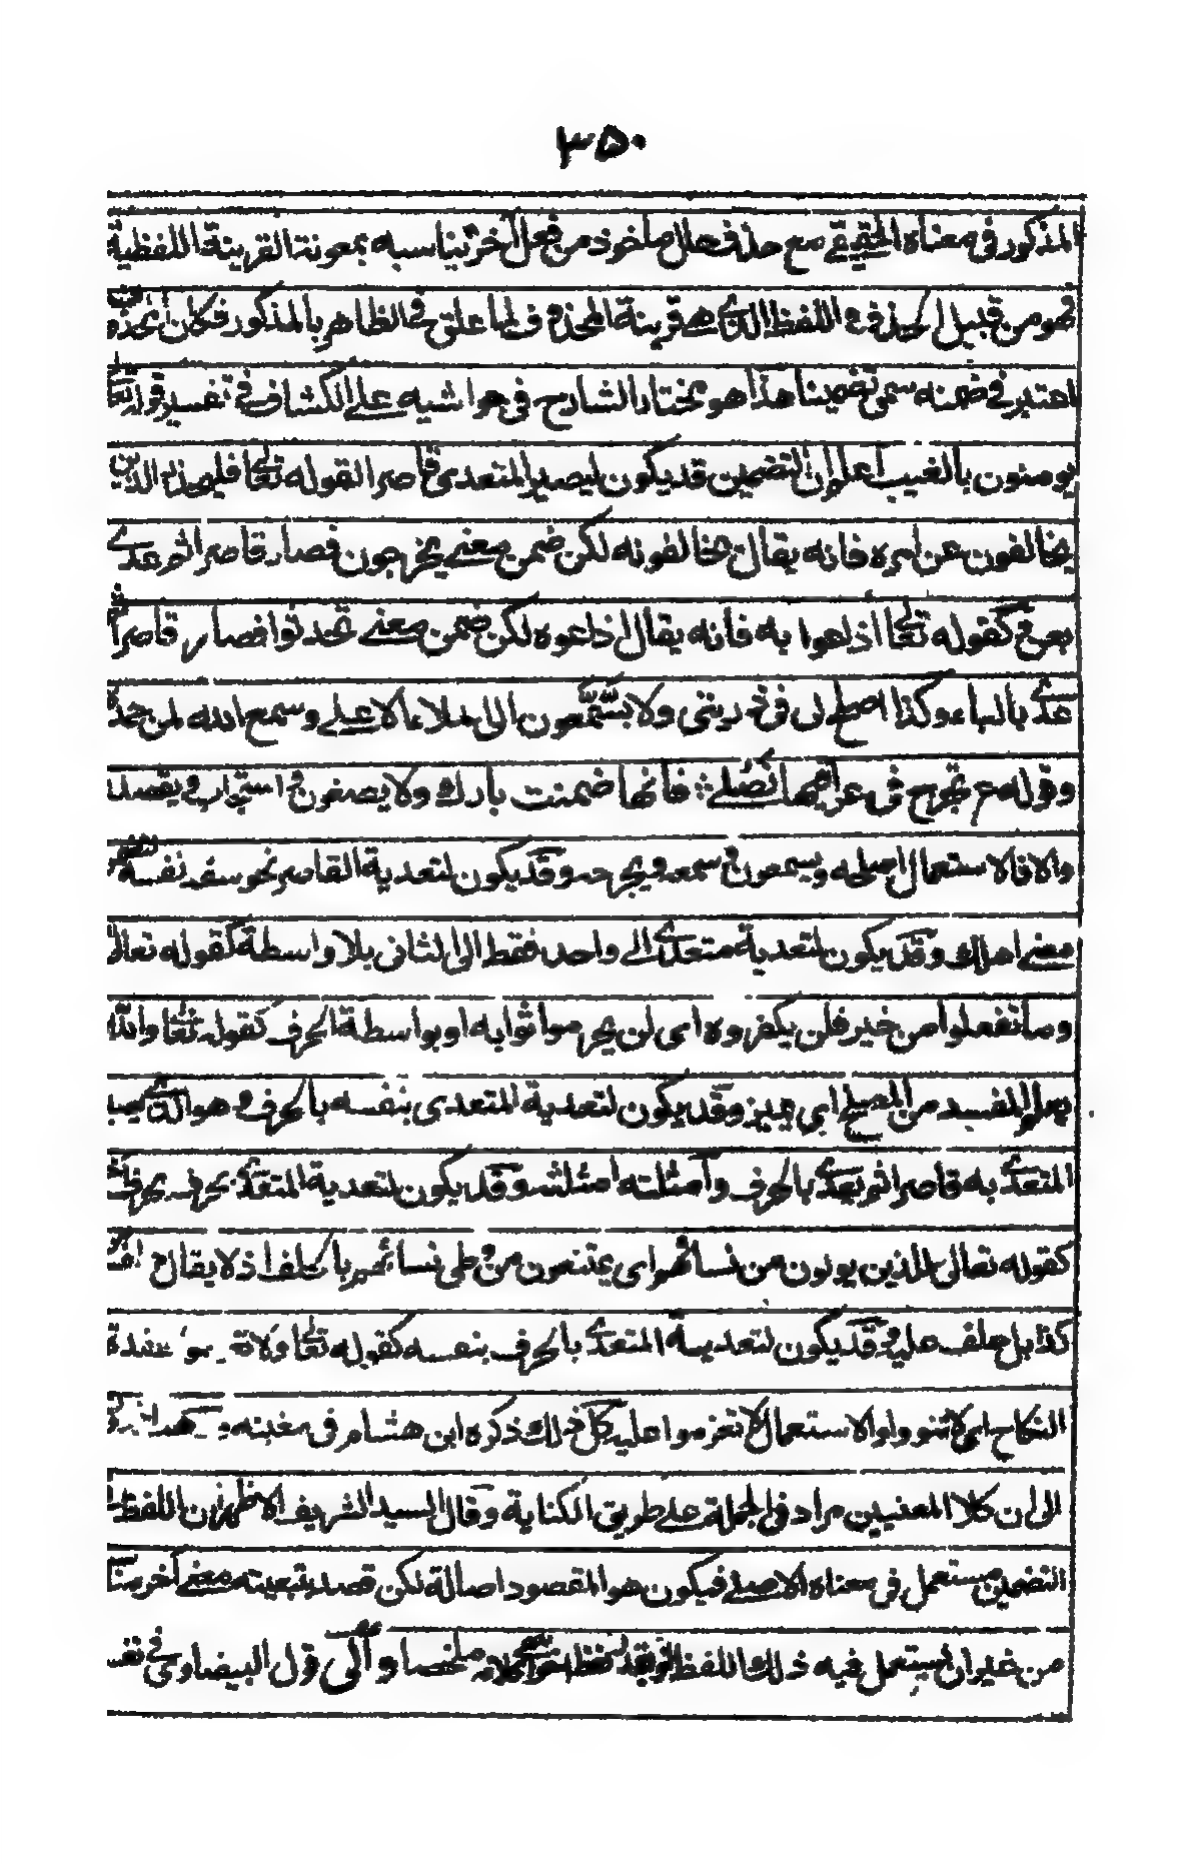 ٣٥٠
المذكور في معناه الحقيقي مع حذف حال ماخوذ من فعل آخر يناسبه بمعونة القرينة اللفظية
فهو من قبيل الحذف و اللفظ الذي هو قرينة المحذوف لما علق في الظاهر بالمذكور فكان المحذوف
اعتبر في ضمنه سمى تضمينا هذا هو مختار الشارح في حواشيه على الكشاف في تفسير قوله تعالى
يومنون بالغيب اعلم ان التضمين قد يكون ليصير المتعدى قاصرا لقوله تعالى فليحذر الذين
يخالفون عن امره فانه يقال يخالفونه لكن ضمن معنى يخرجون فصار قاصرا ثم عدى
بعن و كقوله تعالى اذاعوا به فانه يقال اذاعوه لكن ضمن معنى تحدثوا فصار قاصرا ثم
عدى بالباء وكذا اصلح لى في ذريتي ولا يسمعون الى الملاء الاعلى وسمع الله لمن حمده
وقوله ع تجرح في عراقيبها نصلى فانها ضمنت بارك ولا يصغون و استجاب و يفسد
والا فالاستعمال اصلحه ويسمعون و سمعه ويجرحه وقد يكون لتعدية القاصر نحو سفه نفسه لتضمن
معنى اهلك وقد يكون لتعدية متعدى الى واحد فقط الى الثاني بلا واسطة كقوله تعالى
وما تفعلوا من خير فلن يكفروه اى لن يحرموا ثوابه او بواسطة الحرف كقوله تعالى والله
يعلم المفسد من المصلح اى يميز وقد يكون لتعدية المتعدى بنفسه بالحرف و هو الذي يصير
المتعدى به قاصرا ثم يعدى بالحرف وامثلته امثلته وقد يكون لتعدية المتعدى بحرف بحرف آخر
كقوله تعالى للذين يولون من نسائهم اى يمتنعون من وطى نسائهم بالحلف اذ لا يقال حلف
كذا بل حلف عليه وقد يكون لتعدية المتعدى بالحرف بنفسه كقوله تعالى ولا تعزموا عقدة
النكاح اى لا تنووا والاستعمال لا تعزموا عليه كل ذلك ذكره ابن هشام في مغنيه و
الى ان كلا المعنيين مراد في الجملة على طريق الكناية وقال السيد الشريف الاظهر ان اللفظ في
التضمين مستعمل في معناه الاصلى فيكون هو المقصود اصالة لكن قصد بتبعيته معنى آخر يناسبه
من غير ان يستعمل فيه ذلك اللفظ او يقدر لفظ آخر كلامه ملخصا والى قول البيضاوى في تفسير